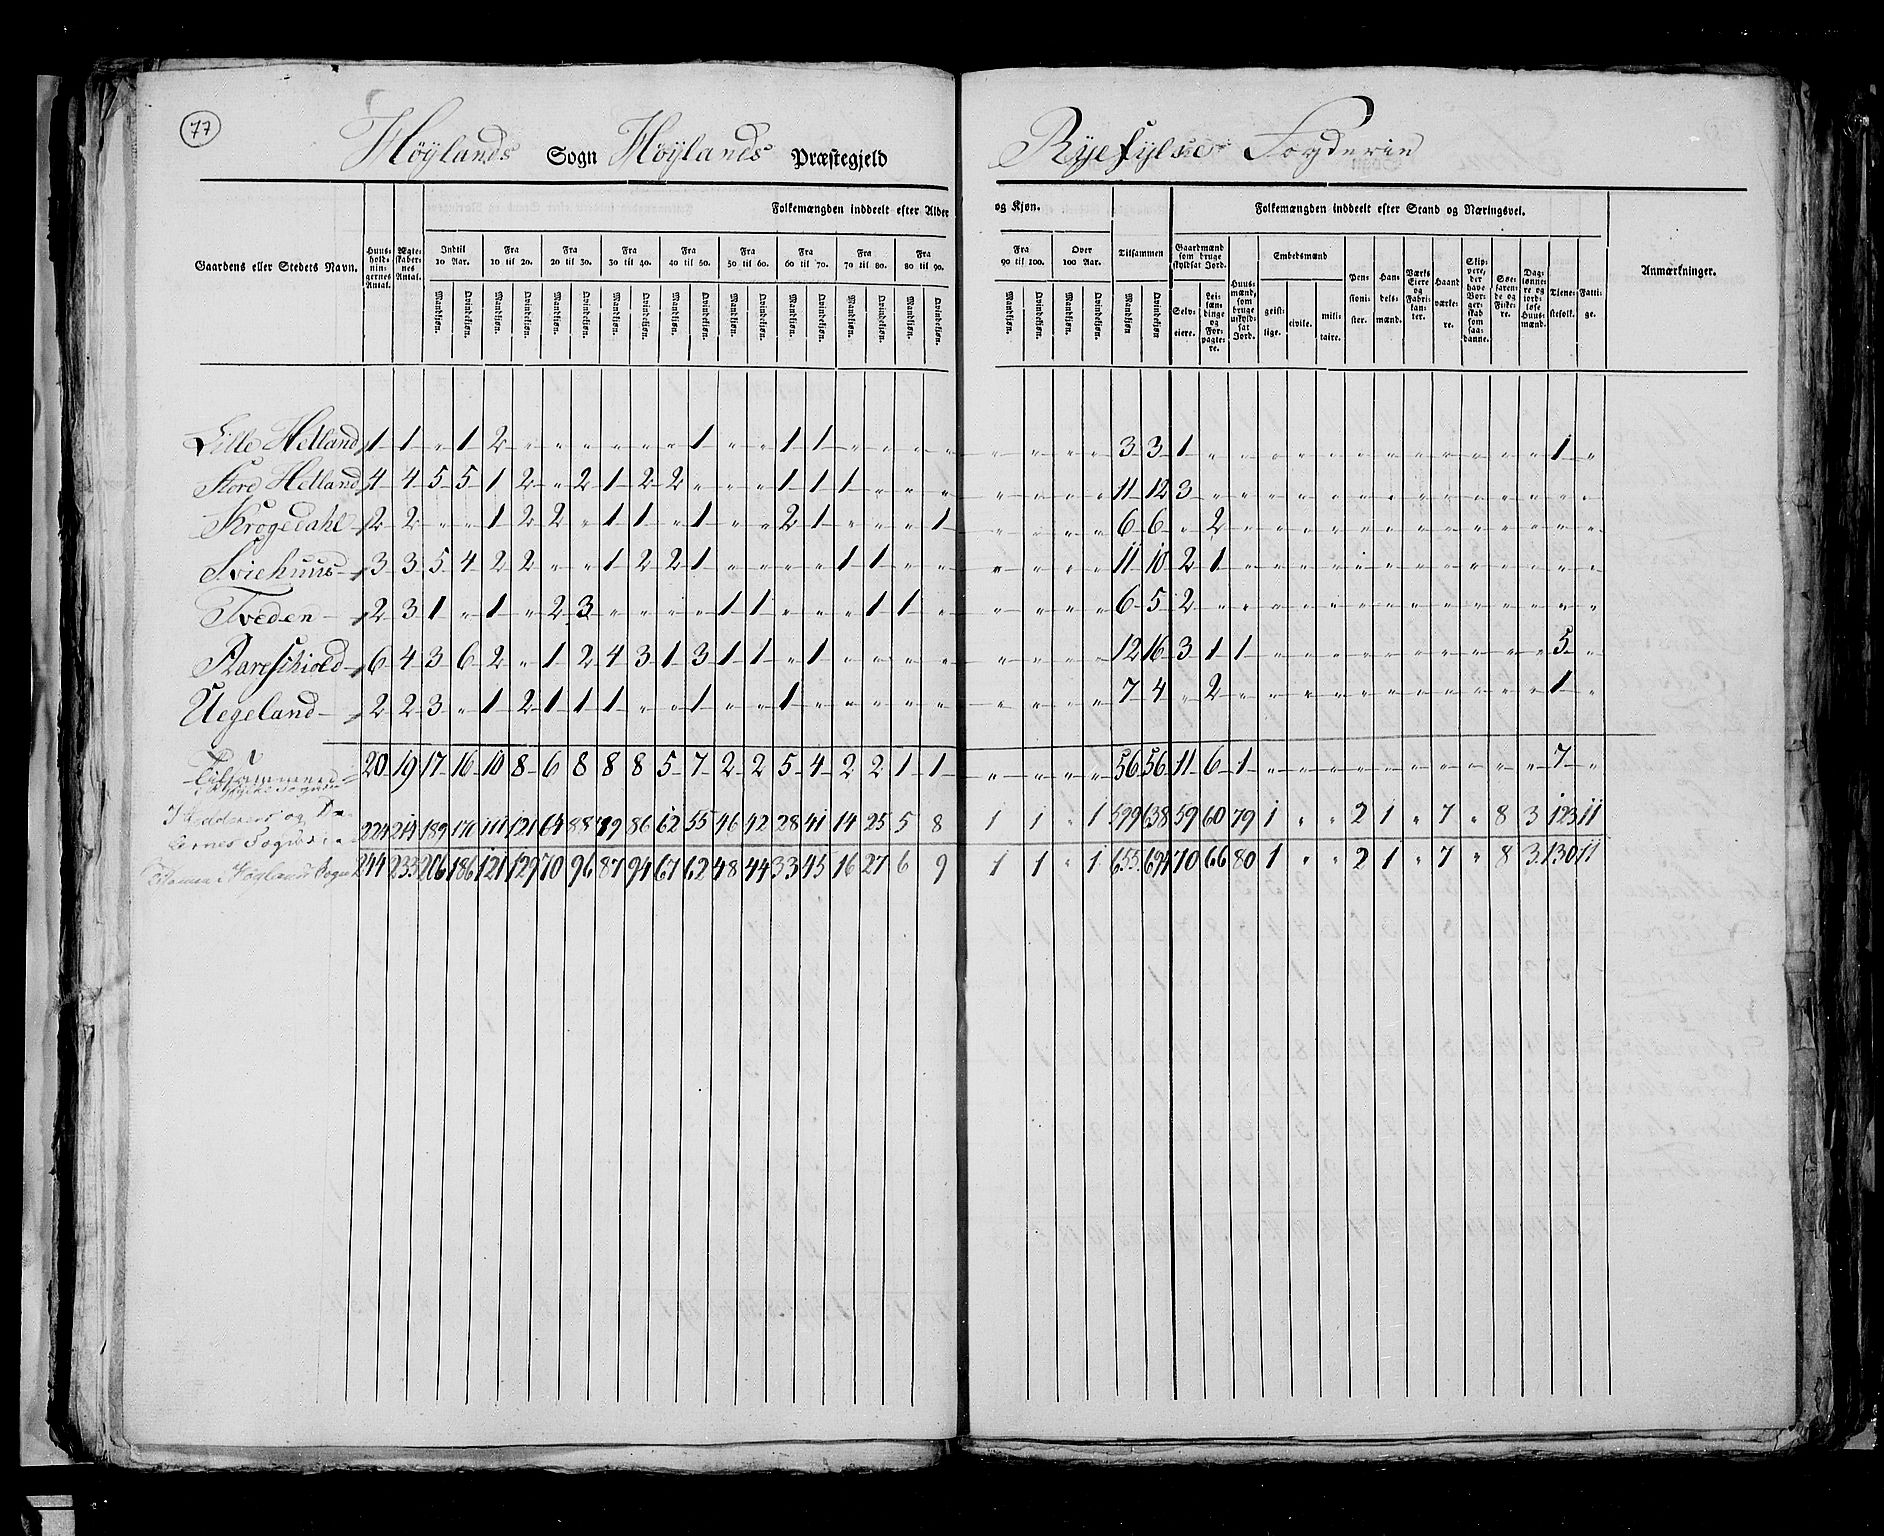 77
Höylands Sogn Höylands Præstegjeld
Ryefylse Fogderie
Folkemængden inddeelt efter Alder og Kjøn.
Folkemængden inddeelt efter Stand og Næringsvei.
Gaardens eller Stedets Navn.
Huus-holdnin-gernes Antal.
Ægte-skaber-nes Antal.
Indtil 10 Aar. Fra 10 til 20. Fra 20 til 30. Fra 30 til 40. Fra 40 til 50. Fra 50 til 60. Fra 60 til 70. Fra 70 til 80. Fra 80 til 90. Fra 90 til 100. Over 100 Aar. Tilsammen
Mandkjøn. Qvindekjøn. Mandkjøn. Qvindekjøn. Mandkjøn. Qvindekjøn. Mandkjøn. Qvindekjøn. Mandkjøn. Qvindekjøn. Mandkjøn. Qvindekjøn. Mandkjøn. Qvindekjøn. Mandkjøn. Qvindekjøn. Mandkjøn. Qvindekjøn. Mandkjøn. Qvindekjøn. Mandkjøn. Qvindekjøn. Mandkjøn Qvindekjøn.
Gaardmænd som bruge skyldsat Jord.
Selv-eiere.
Lei-læn-dinge og For-pagte-re.
Huus-mænd, som bruge uskyld-sat Jord.
Embedsmænd
geist-lige. civile. mili-taire.
Pen-sioni-ster.
Han-dels-mænd.
Værks Eiere og Fabri-kan-ter.
Haand værke-re.
Slip-pere, der have Bor-ger-skab som saa-danne.
Søe-faren-de og Fiske-re.
Dag-lønne-re og jord-løse Huus-mænd.
Tiene-stefolk.
Fatti-ge.
Anmærkninger.
Lille Helland 1 1 " 1 2 " " " " " " 1 " " 1 1 " " " " " " " " 3 3 1 " " " " " " " " " " " " 1 "
Store Helland 4 4 5 5 1 2 " 2 1 2 2 " " " 1 1 1 " " " " " " " 11 12 3 " " " " " " " " " " " " " "
Krogedahl 2 2 " " 1 2 2 " 1 1 " 1 " " 2 1 " " " 1 " " " " 6 6 " 2 " " " " " " " " " " " " "
Sviehuus 3 3 5 4 2 2 " " 1 2 2 1 " " " " 1 1 " " " " " " 11 10 2 1 " " " " " " " " " " " " "
Tveden 2 3 1 " 1 " 2 3 " " " " 1 1 " " " 1 1 " " " " " 6 5 2 " " " " " " " " " " " " " "
6 4 3 6 2 " 1 2 4 3 1 3 1 1 " 1 " " " " " " " " 12 16 3 1 1 " " " " " " " " " " 5 "
Uegeland 2 2 3 " 1 2 1 1 1 " " 1 " " 1 " " " " " " " " " 7 4 " 2 " " " " " " " " " " " 1 "
Tilsammen
20 19 17 16 10 8 6 8 8 8 5 7 2 2 5 4 2 2 1 1 " " " " 56 56 11 6 1 " " " " " " " " " " 7 "
224 214 189 170 111 121 64 88 79 86 62 55 46 42 28 41 14 25 5 8 1 1 " 1 599 638 59 60 79 1 " " 2 1 " 7 " 8 3 123 11
Höylands Sogn 244 233 206 186 121 129 70 96 87 94 67 62 48 44 33 45 16 27 6 9 1 1 " 1 655 694 70 66 80 1 " " 2 1 " 7 " 8 3 130 11